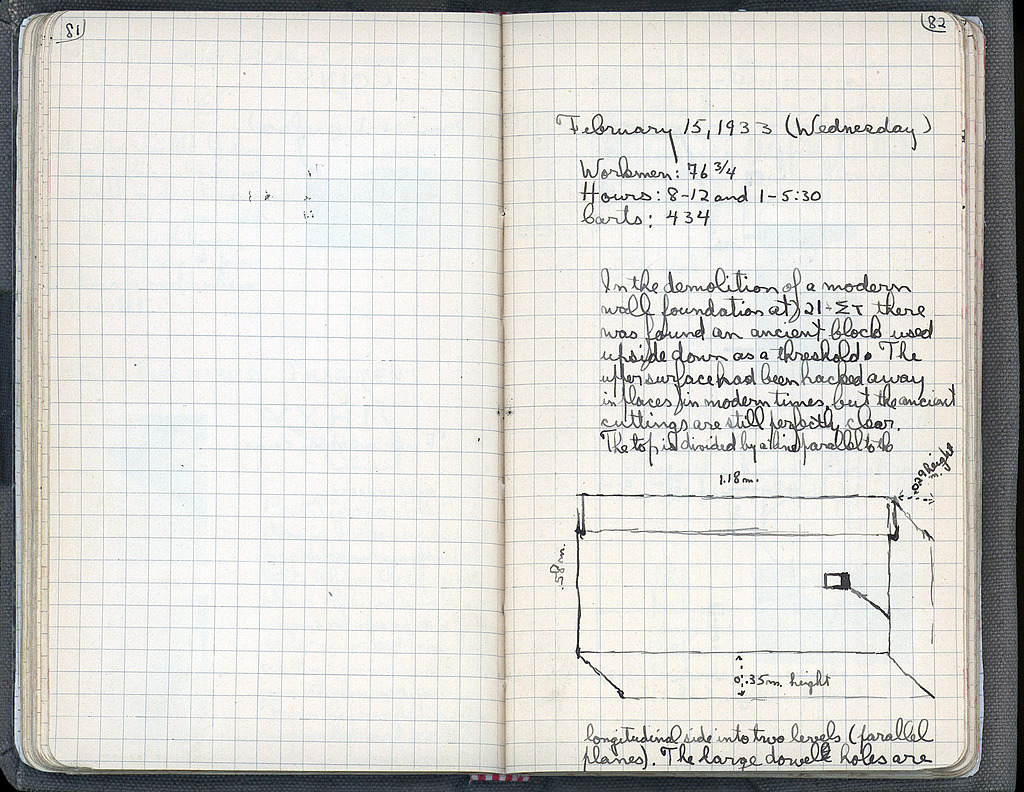 81
82
February 15, 1933 (Wednesday)
Workmen: 76 3/4
Hours: 8-12 and 1-5:30
Carts: 434
In the demolition of a modern
wall foundation at 21-ΣΤ there
was found an ancient block used
upside down as a threshold. The
upper surface had been hacked away
in places in modern times, but the ancient
cuttings are still perfectly clear.
The top is divided by a line parallel to the
1.18 m.
height
.58 m.
0.35 m. height
longitudinal side into two levels (parallel
planes). The large dowel holes are